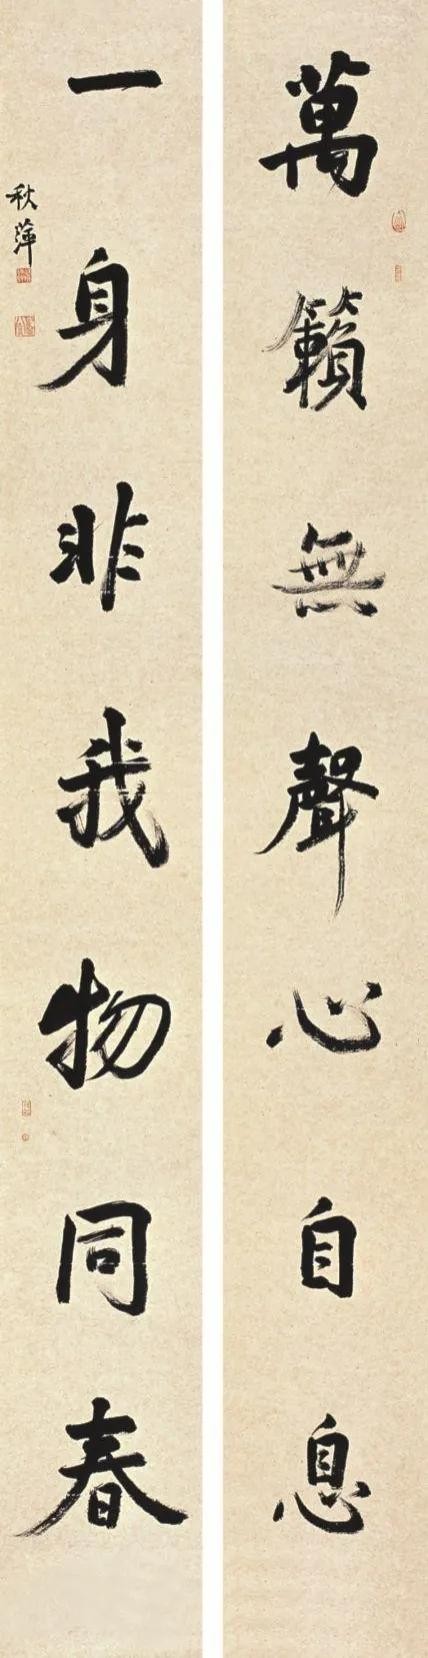 萬籟無聲心自息
一身非我物同春
秋萍